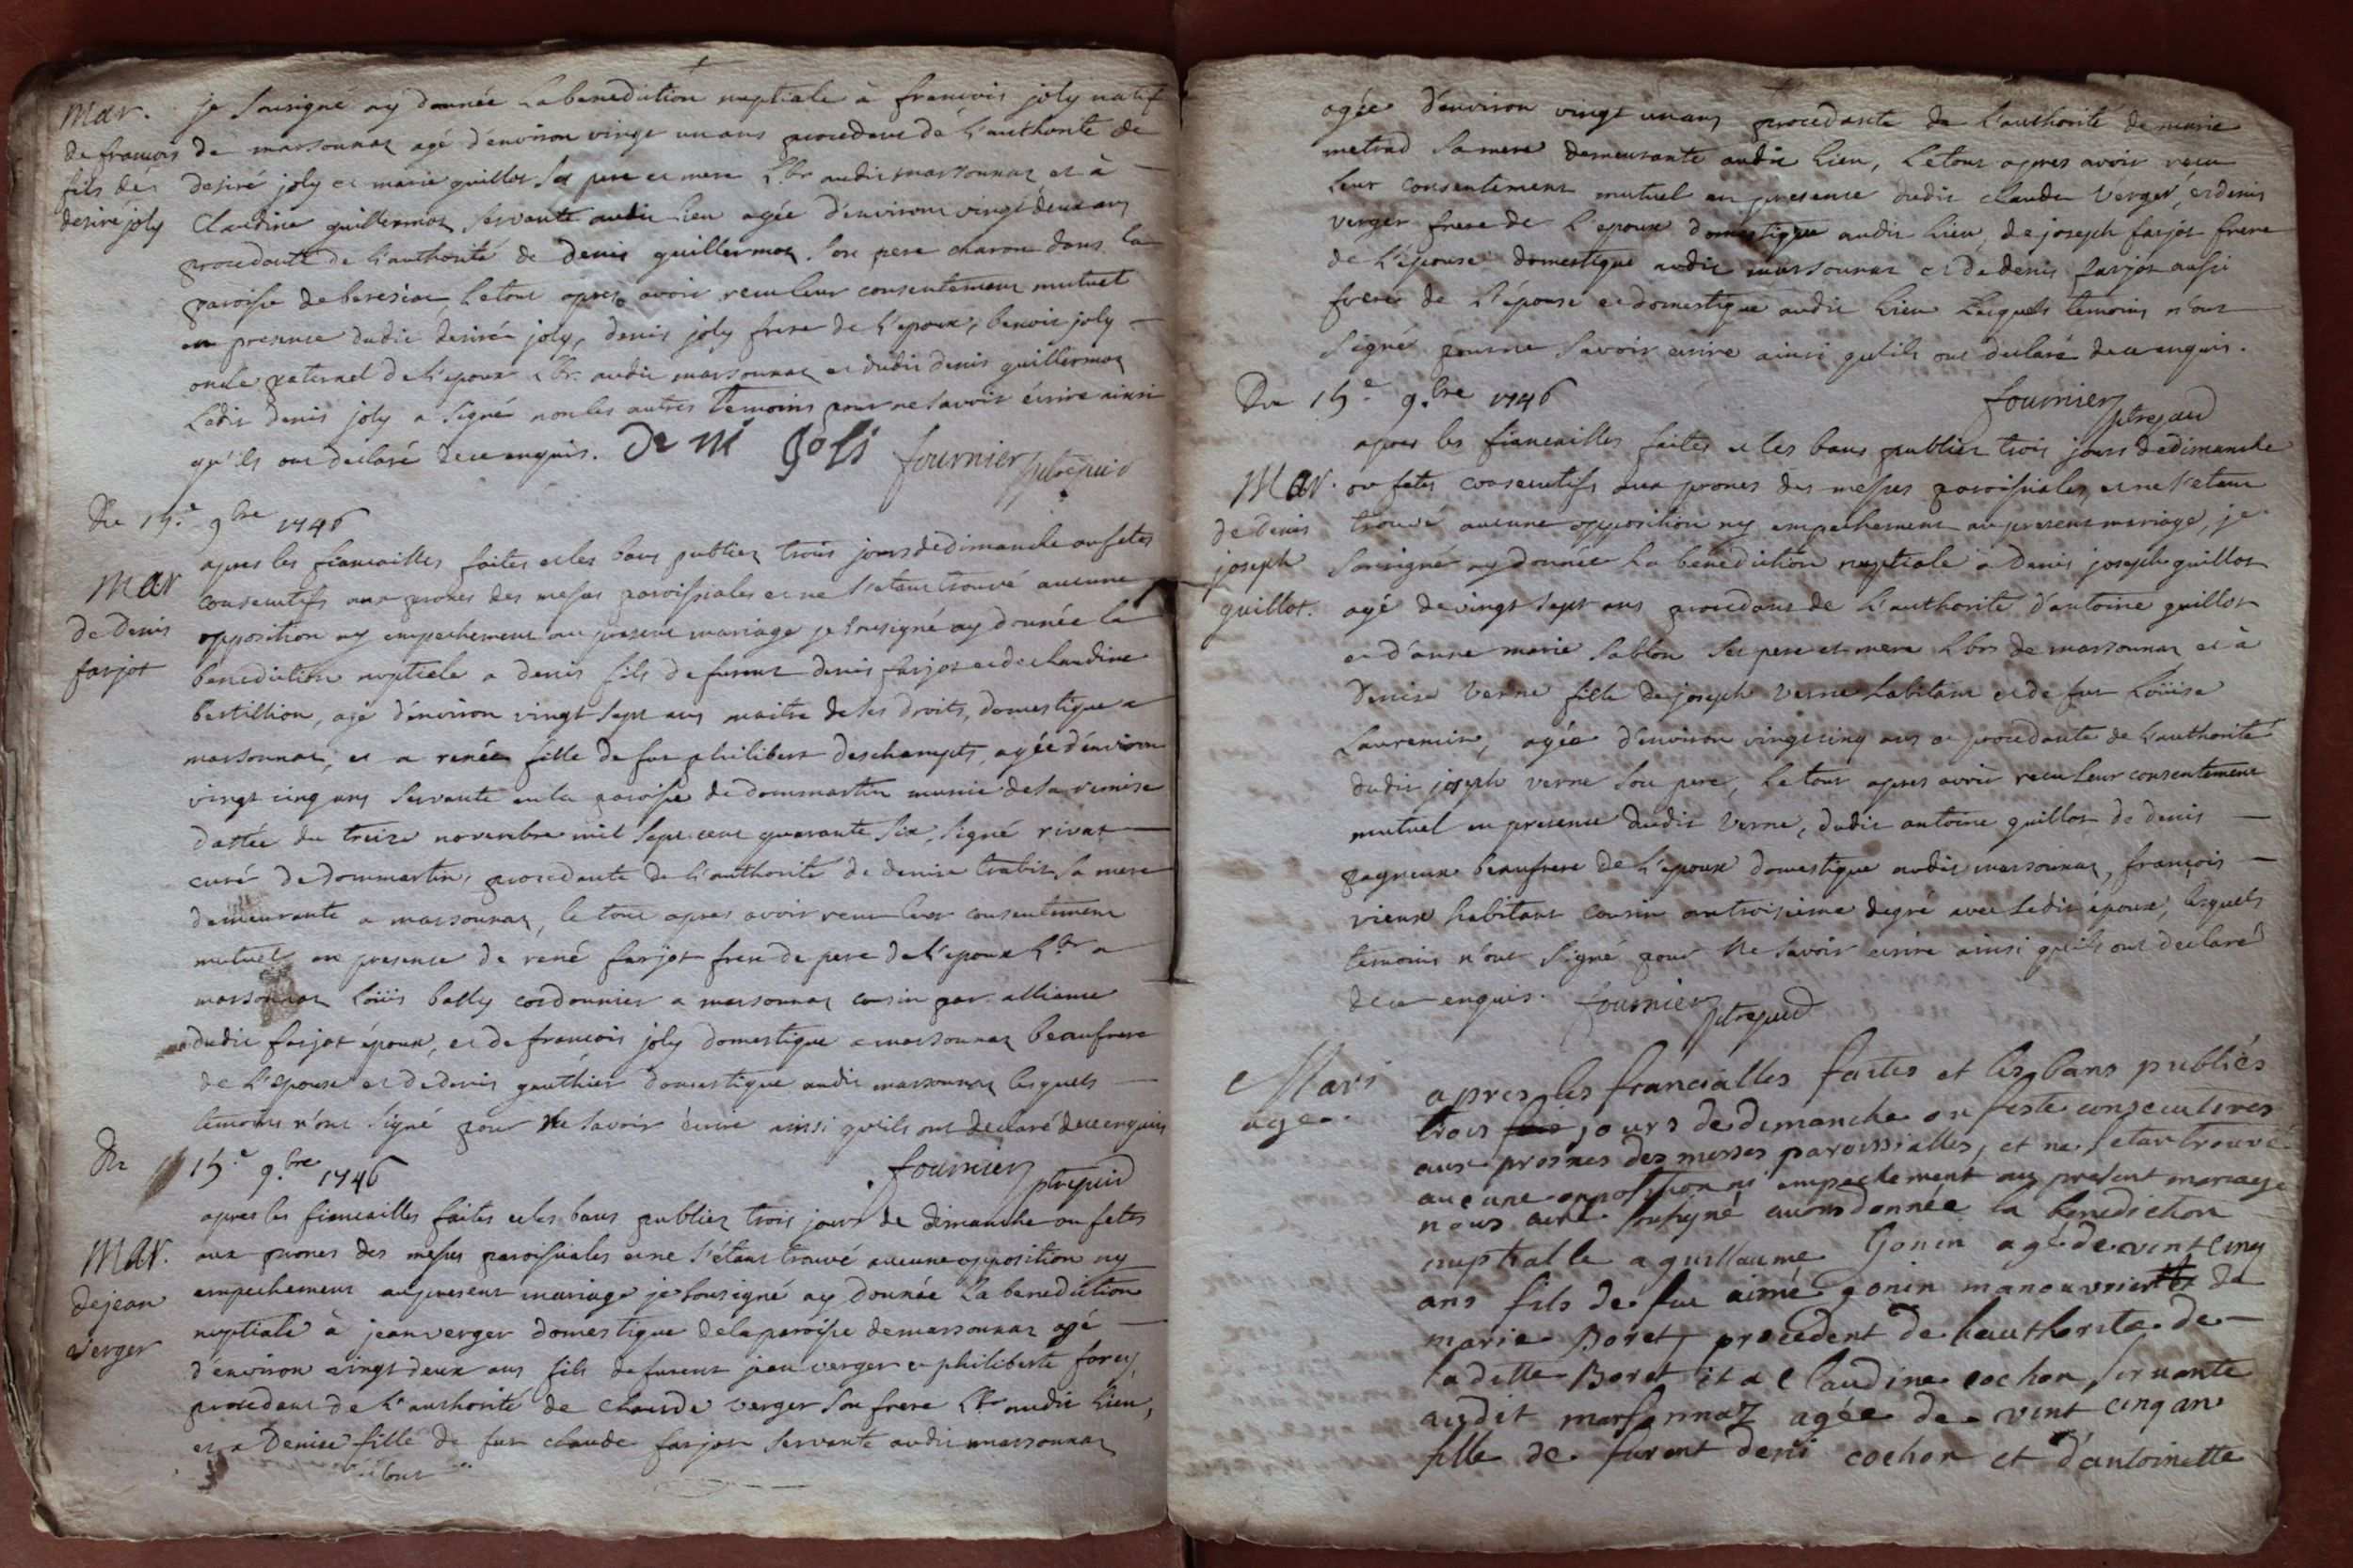 Mar.
de françois
fils de
desiré joly
je Sousigné ay donnée La benediction nuptiale à francois joly natif
de marsonnaz agé d'environ vingt un ans procedant de l'authorité de
desiré joly et marie guillot Ses pere et mere Lbr audit marsonnaz et à
Claudine guillermoz servante audit lieu agée d'environ vingt deux ans
procedante de l'authorité de denis guillermoz son pere charon dans la
paroisse de beresiat Le tout apres avoir recu leur consentement mutuel
en presence dudit desiré joly, denis joly frere de l'epoux, benoit joly
oncle paternel de l'epoux Lbr. audit marsonnaz et dudit denis guillermoz
Ledit denis joly a signé non les autres temoins pour ne savoir écrire ainsi
qu'ils ont declaré de ce enquis. De ni Joli fournier ptre curé
Du 15.e 9bre 1746
Mar
de denis
farjot
apres les fiancailles faites et les bans publiez trois jours de dimanche ou fetes
consecutifs aux prones des messes paroissiales et ne s'etant trouvé aucune
opposition ny empechement au present mariage je sousigné ay donnée la
benediction nuptiale a denis fils de furent denis farjot et de claudine
bertillion, agé d'environ vingt sept ans maitre de ses droits, domestique a
marsonnaz, et a renée fille de fut philibert deschampts, agée d'environ
vingt cinq ans servante en la paroisse de dommartin munie de la remise
dattée du treize novembre mil sept cent quarante six, signé rivat
curé de dommartin, procedante de l'authorité de denise trabit, sa mere
demeurante a marsonnaz, le tout apres avoir recu leur consentement
mutuel en presence de rené farjot frere de pere de l'epoux Lbr a
marsonnaz Loüis bally cordonnier a marsonnaz cousin par alliance
dudit farjot époux, et de francois joly domestique a marsonnaz beaufrere
de l'epouse et de denis gauthier domestique audit marsonnaz lesquels
temoins n'ont signé pour Ne savoir écrire ainsi qu'ils ont declaré de ce enquis
Du 15.e 9.bre 1746 fournier ptre curé
Mar.
de jean
verger
apres les fiancailles faites et les bans publiez trois jours de dimanche ou fetes
aux prones des messes paroissiales et ne s'étant trouvé aucune opposition ny
empechement au present mariage je sousigné ay donnée la benediction
nuptiale à jean verger domestique de la paroisse de marsonnaz agé
d'environ vingt deux ans fils de furent jean verger et philiberte forey,
procedant de l'authorité de claude verger son frere Lbr audit lieu,
et a Denise fille de fut claude farjot servante audit marsonnaz
agée d'environ vingt un ans procedante de l'authorité de marie
metrad sa mere demeurante audit lieu, Le tout apres avoir recu
leur consentement mutuel en presence dudit claude verger, et denis
verger frere de l'epoux domestique audit lieu, de joseph farjot frere
de l'épouse domestique audit marsonnaz et de denis farjot aussi
frere de l'épouse et domestique audit lieu Lesquels temoins n'ont
signé pour ne savoir ecrire ainsi qu'ils ont declaré de ce enquis.
Du 15.e 9.bre 1746 fournier ptre curé
Mar.
de denis
joseph
guillot.
apres les fiancailles faites et les bans publiez trois jours de dimanche
ou fetes consecutifs aux prones des messes paroissiales, et ne s'etant
trouvé aucune opposition ny empechement au present mariage, je
sousigné ay donnée la benediction nuptiale a Denis joseph guillot
agé de vingt sept ans procedant de l'authorité d'antoine guillot
et d'anne marie sablon ses pere et mere Lbrs de marsonnaz et à
Denise verne fille de joseph verne habitant et de fut Loüise
Laurencin, agée d'environ vingt cinq ans et procedante de l'authorité
dudit joseph verne son pere, Le tout apres avoir recu leur consentement
mutuel en presence dudit verne, dudit antoine guillot de denis
pagneux beaufrere de l'epoux domestique audit marsonnaz, françois
vieux habitant cousin au troisieme degré avec ledit époux, lesquels
temoins n'ont signé pour Ne savoir ecrire ainsi qu'ils ont declaré
de ce enquis. fournier ptre curé
Mari
age.
apres les francialles faites et les bans publiés
trois fois jours de dimanche ou feste consecutives
aux prosnes des messes paroissialles, et ne setan trouvé
aucune opposition ni empechement au present mariage
nous curé sousigné avons donnée la benediction
nuptialle a guillaume Gonin agé de vint cinq
ans fils de fut aimé gonin manouvrier de
marie Boret, procedent de lauthorite de
laditte Boret et a Claudine cochon servante
audit marsonnaz agée de vint cinq an
fille de furent deni cochon et d'antoinette